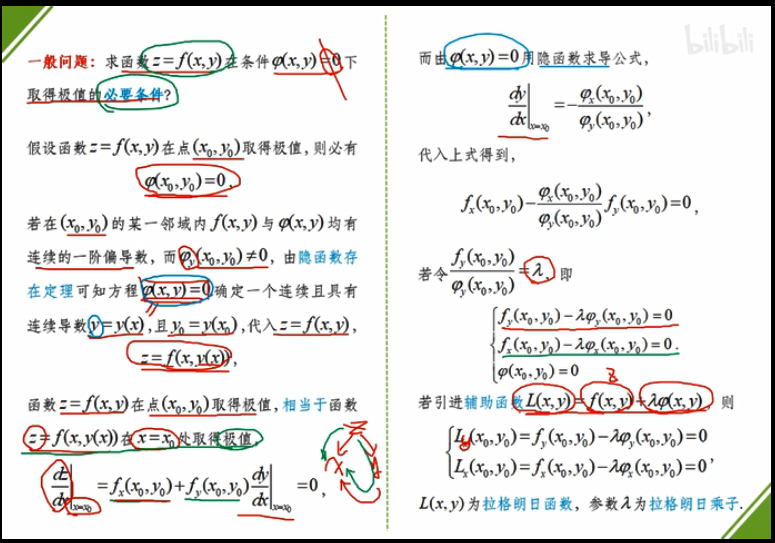 一般问题：求函数z=f(x,y)在条件φ(x,y)=0下
取得极值的必要条件?
假设函数z=f(x,y)在点(x₀,y₀)取得极值，则必有
φ(x₀,y₀)=0.
若在(x₀,y₀)的某一邻域内f(x,y)与φ(x,y)均有
连续的一阶偏导数，而φ_y(x₀,y₀)≠0，由隐函数存
在定理可知方程φ(x,y)=0确定一个连续且具有
连续导数y=y(x)，且y₀=y(x₀)，代入z=f(x,y)，
z=f(x,y(x))，
函数z=f(x,y)在点(x₀,y₀)取得极值，相当于函数
z=f(x,y(x))在x=x₀处取得极值，
dz/dx|_{x=x₀}=f_x(x₀,y₀)+f_y(x₀,y₀)dy/dx|_{x=x₀}=0，
z
x y
bilibili
而由φ(x,y)=0用隐函数求导公式，
dy/dx|_{x=x₀}=-φ_x(x₀,y₀)/φ_y(x₀,y₀)，
代入上式得到，
f_x(x₀,y₀)-φ_x(x₀,y₀)/φ_y(x₀,y₀)f_y(x₀,y₀)=0，
若令f_y(x₀,y₀)/φ_y(x₀,y₀)=λ，即
f_y(x₀,y₀)-λφ_y(x₀,y₀)=0
f_x(x₀,y₀)-λφ_x(x₀,y₀)=0.
φ(x₀,y₀)=0
若引进辅助函数L(x,y)=f(x,y)+λφ(x,y)，则
L_y(x₀,y₀)=f_y(x₀,y₀)-λφ_y(x₀,y₀)=0
L_x(x₀,y₀)=f_x(x₀,y₀)-λφ_x(x₀,y₀)=0，
L(x,y)为拉格朗日函数，参数λ为拉格朗日乘子.